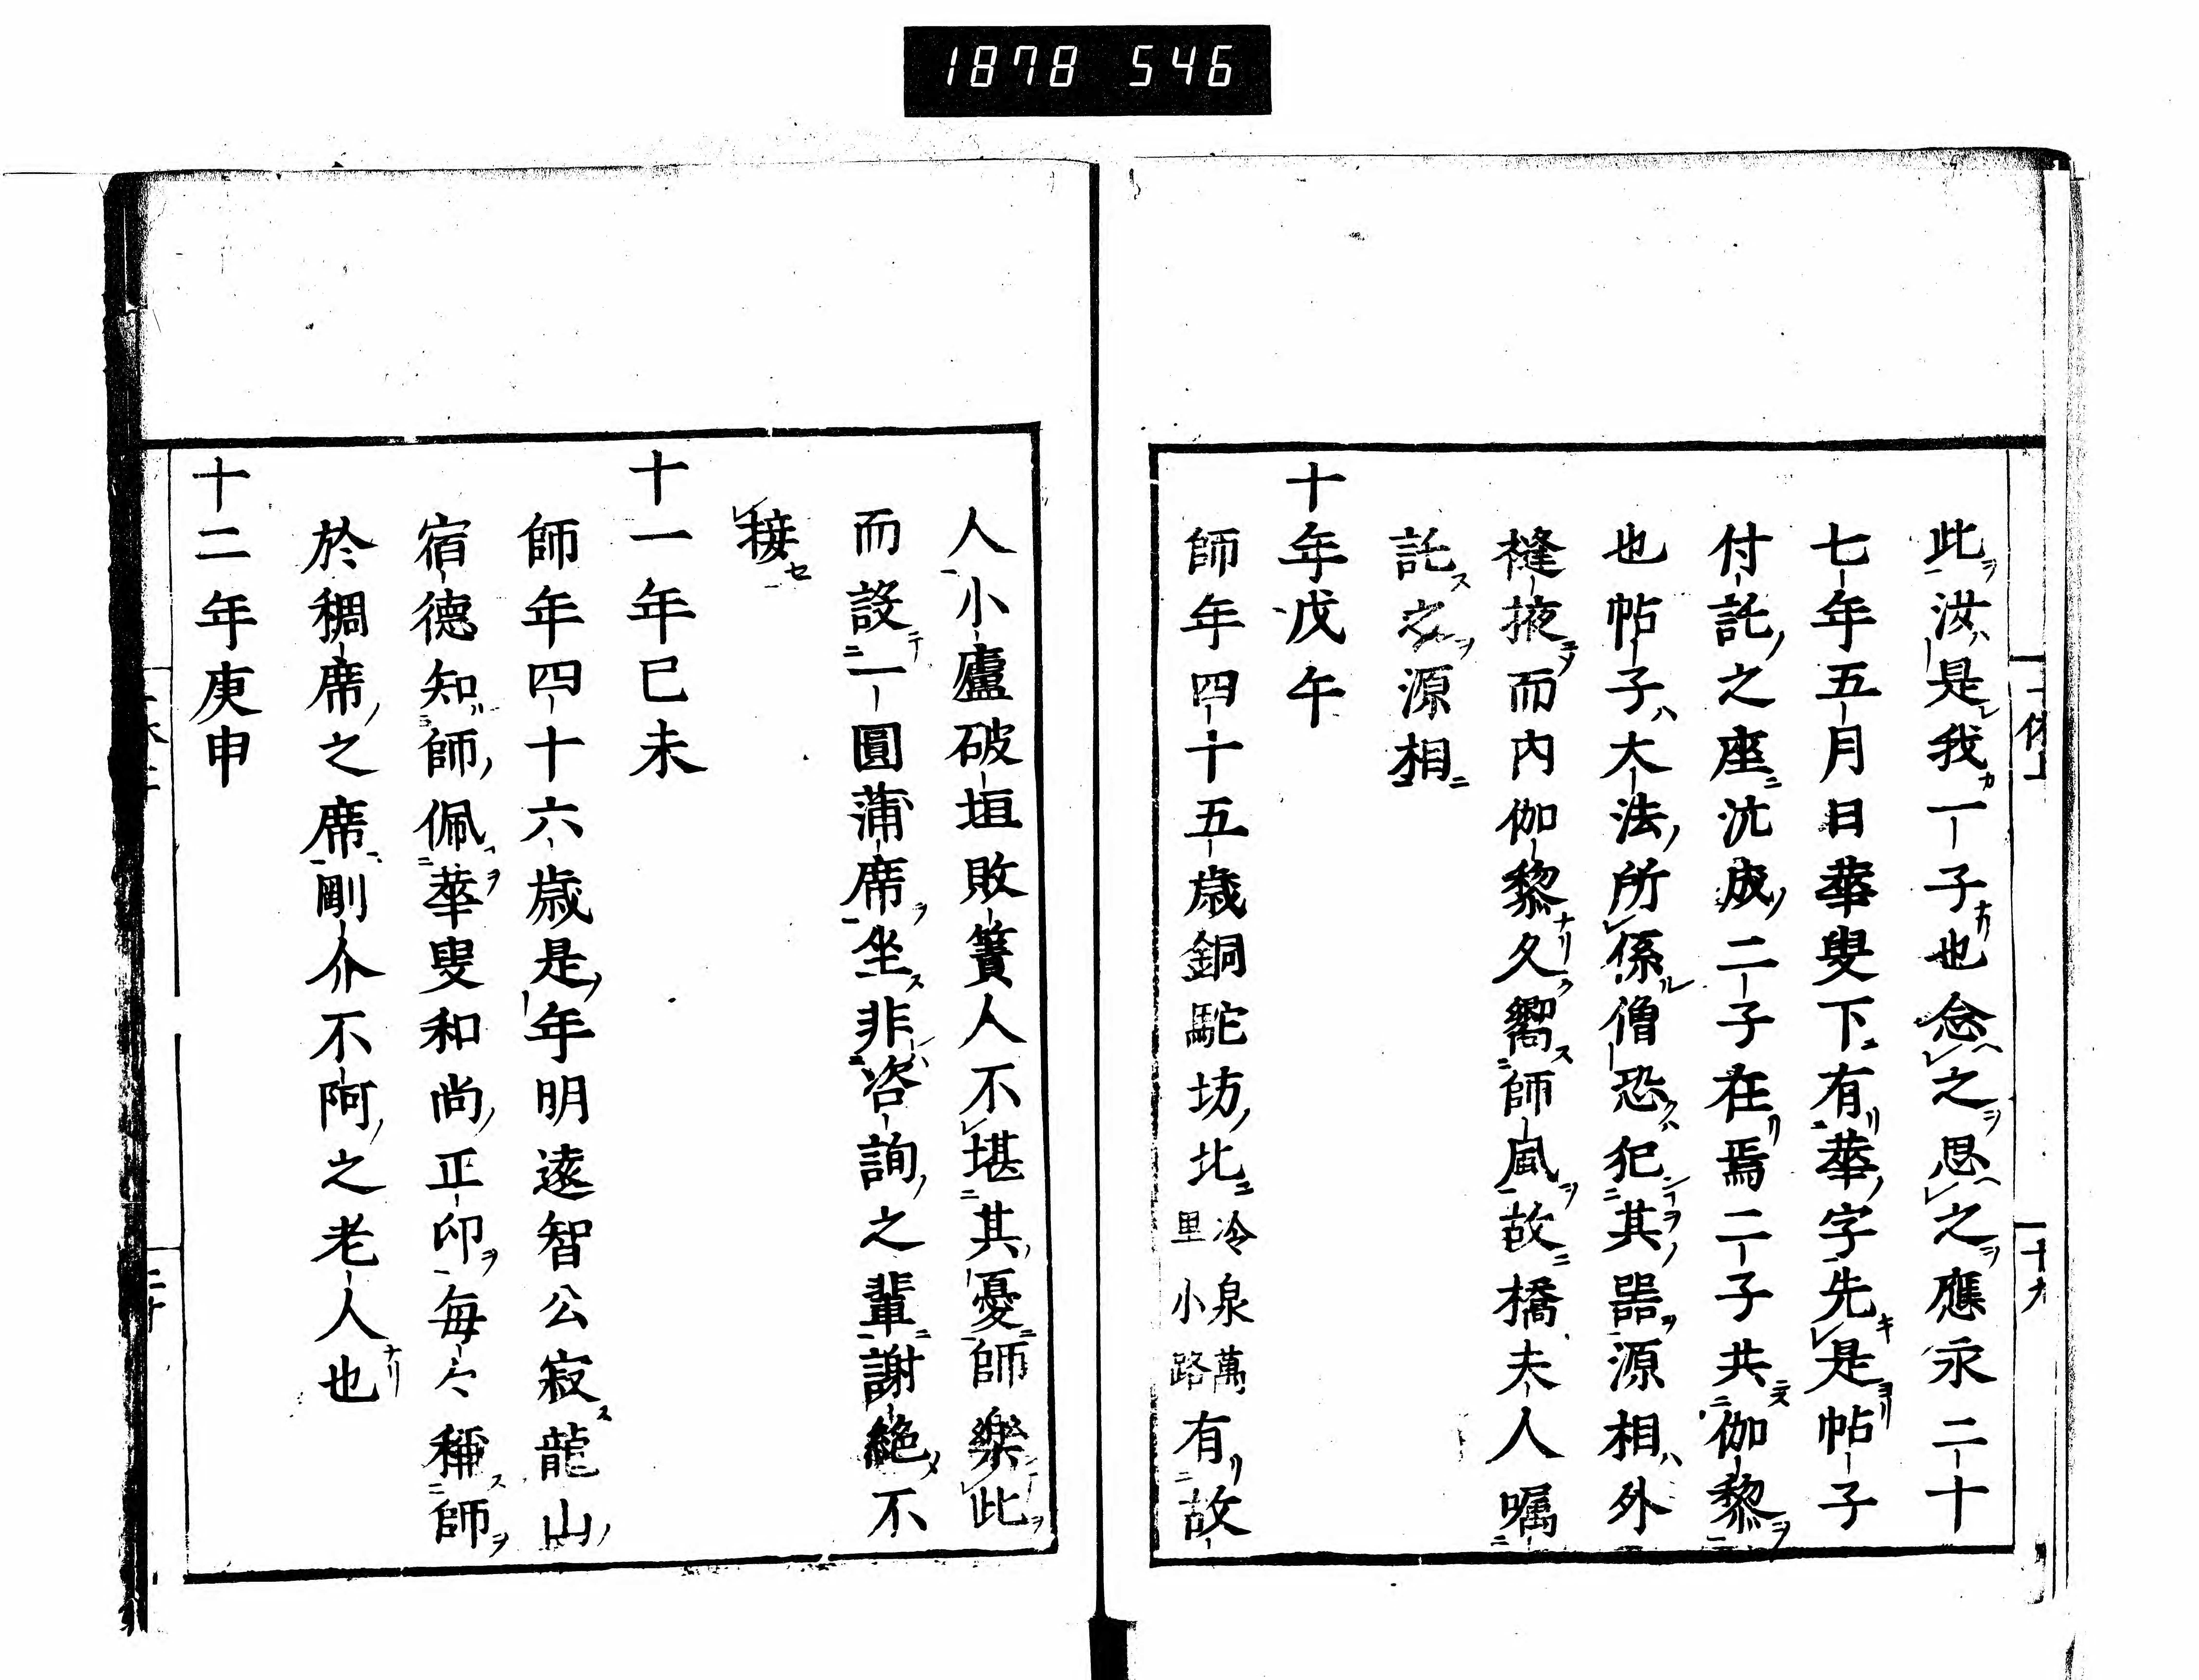 1878 546
此汝是我一子也念之思之應永二十
七年五月日華叟下有華字先是帖子
付託之座沈成二子在焉二子共伽黎
也帖子大法所係僧恐犯其器源相外
縫掖而内伽黎久嚮師風故橋夫人嘱
託之源相
十年戊午
師年四十五歳銅駝坊北冷泉萬里小路有故
人小廬破垣敗簀人不堪其憂師樂此
而設一圓蒲席坐非咨詢之輩謝絶不
接
十一年巳未
師年四十六歳是年明遠智公寂龍山
宿德知師佩華叟和尚正印毎々稱師
於稠席之席剛介不阿之老人也
十二年庚申
十九
二十